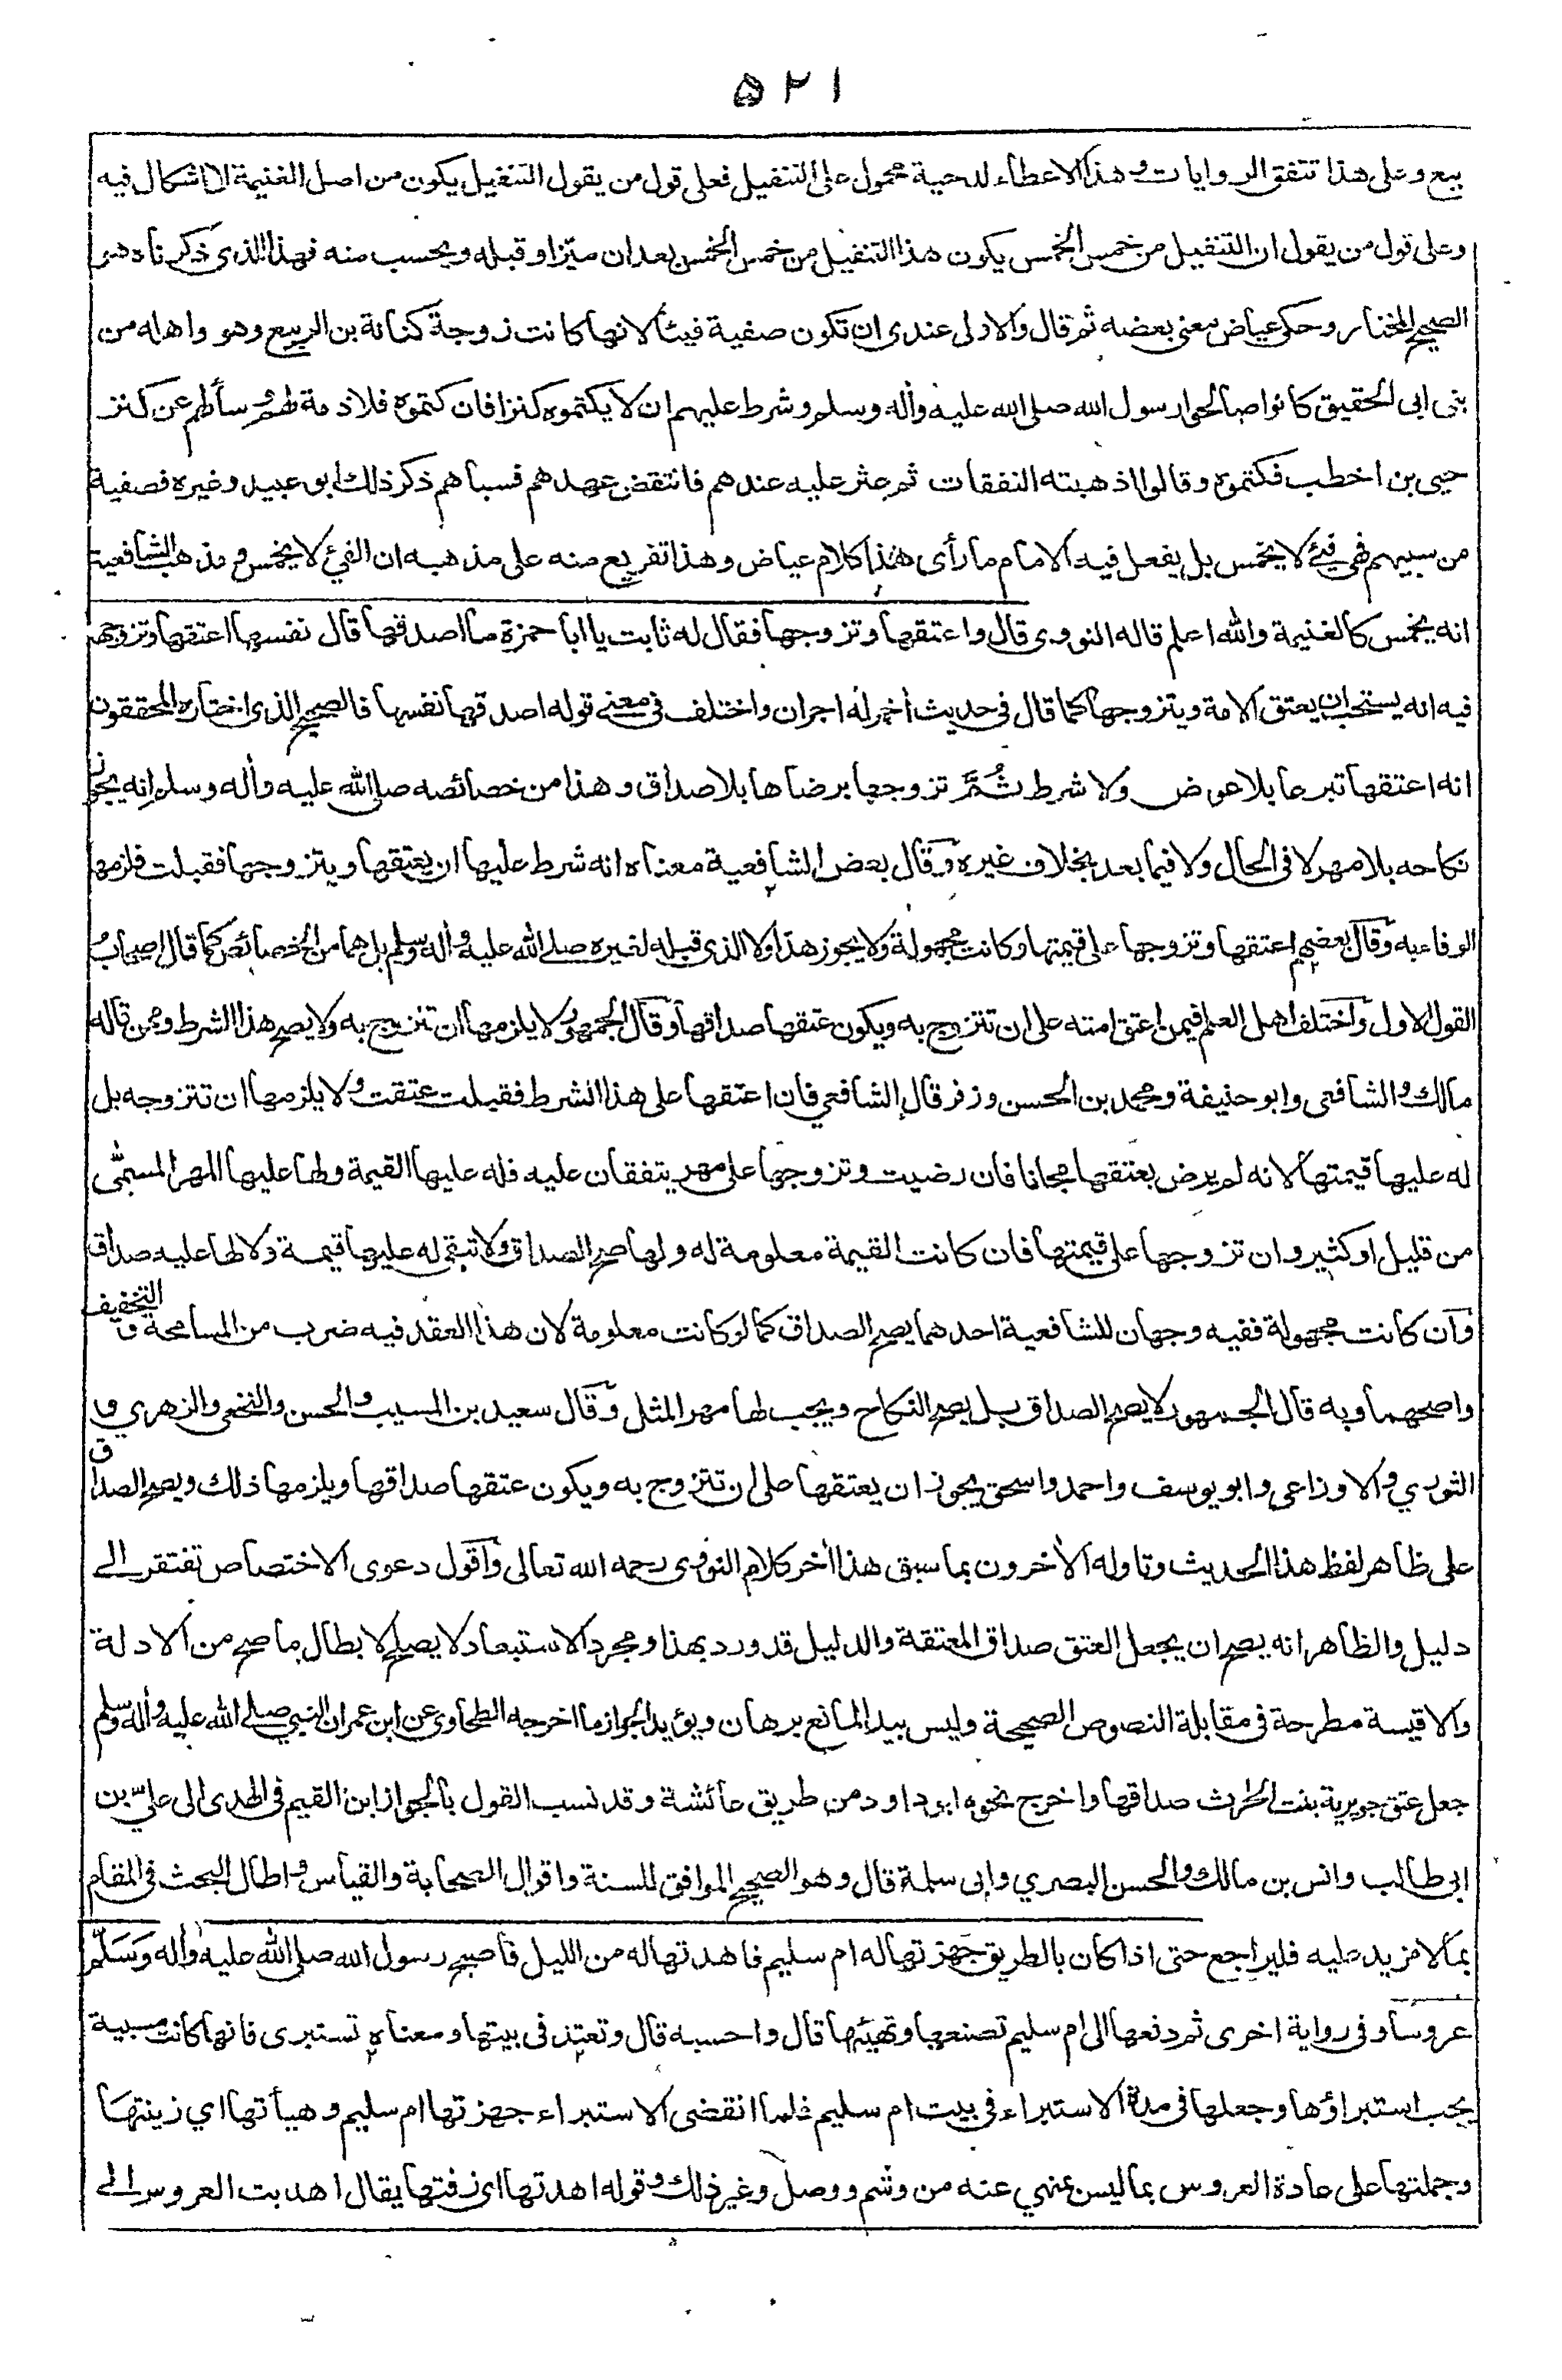 ٥٢١
بيع وعلى هذا تتفق الروايات وهذا الاعطاء لدحية محمول على التنفيل فعلى قول من يقول التنفيل يكون من اصل الغنيمة لا اشكال فيه
وعلى قول من يقول ان التنفيل من خمس الخمس يكون هذا التنفيل من خمس الخمس بعد ان ميّز او قبله ويحسب منه فهذا الذى ذكرناه هو
الصحيح المختار وحكى عياض معنى بعضه ثم قال والاولى عندى ان تكون صفية فيئا لانها كانت زوجة كنانة بن الربيع وهو واهله من
بنى ابى الحقيق كانوا صالحوا رسول الله صلى الله عليه وأله وسلم وشرط عليهم ان لا يكتموه كنزا فان كتموه فلا ذمة لهم وسألهم عن كنز
حيى بن اخطب فكتموه وقالوا اذهبته النفقات ثم عثر عليه عندهم فانتقض عهدهم فسباهم ذكر ذلك ابو عبيد وغيره فصفية
من سبيهم فهى فيئ لا يخمس بل يفعل فيه الامام ما رأى هذا كلام عياض وهذا تفريع منه على مذهبه ان الفيئ لا يخمس ومذهب الشافعية
انه يخمس كالغنيمة والله اعلم قاله النووى قال واعتقها وتزوجها فقال له ثابت يا ابا حمزة ما اصدقها قال نفسها اعتقها وتزوجها
فيه انه يستحب ان يعتق الامة ويتزوجها كما قال فى حديث أخر له اجران واختلف فى معنى قوله اصدقها نفسها فالصحيح الذى اختاره المحققون
انه اعتقها تبرعا بلا عوض ولا شرط ثُمَّ تزوجها برضاها بلا صداق وهذا من خصائصه صلى الله عليه وأله وسلم انه يجوز
نكاحه بلا مهر لا فى الحال ولا فيما بعد بخلاف غيره وقال بعض الشافعية معناه انه شرط عليها ان يعتقها ويتزوجها فقبلت فلزمها
الوفاء به وقال بعضهم اعتقها وتزوجها على قيمتها وكانت مجهولة ولا يجوز هذا ولا الذى قبله لغيره صلى الله عليه وأله وسلم بل هما من الخصائص كما قال اصحاب
القول الاول واختلف اهل العلم فيمن اعتق امته على ان تتزوج به ويكون عتقها صداقها وقال الجمهور لا يلزمها ان تتزوج به ولا يصح هذا الشرط وممن قاله
مالك والشافعى وابو حنيفة ومحمد بن الحسن وزفر قال الشافعي فان اعتقها على هذا الشرط فقبلت عتقت ولا يلزمها ان تتزوجه بل
له عليها قيمتها لانه لم يرض بعتقها مجانا فان رضيت وتزوجها على مهر يتفقان عليه فله عليها القيمة ولها عليها المهر المسمّى
من قليل او كثير وان تزوجها على قيمتها فان كانت القيمة معلومة له ولها صح الصداق ولا تبقى له عليها قيمة ولا لها عليه صداق
وان كانت مجهولة ففيه وجهان للشافعية احدهما يصح الصداق كما لو كانت معلومة لان هذا العقد فيه ضرب من المسامحة و التخفيف
واصحهما وبه قال الجمهور لا يصح الصداق بل يصح النكاح ويجب لها مهر المثل وقال سعيد بن المسيب والحسن والنخعى والزهري و
الثوري والاوزاعي وابو يوسف واحمد واسحق يجوز ان يعتقها على ان تتزوج به ويكون عتقها صداقها ويلزمها ذلك ويصح الصداق
على ظاهر لفظ هذا الحديث وتاوله الأخرون بما سبق هذا أخر كلام النووى رحمه الله تعالى وأقول دعوى الاختصاص تفتقر الى
دليل والظاهر انه يصح ان يجعل العتق صداق المعتقة والدليل قد ورد بهذا ومجرد الاستبعاد لا يصلح لابطال ما صح من الادلة
والاقيسة مطرحة فى مقابلة النصوص الصحيحة وليس بيد المانع برهان ويؤيد الجواز ما اخرجه الطحاوى عن ابن عمر ان النبي صلى الله عليه وأله وسلم
جعل عتق جويرية بنت الحارث صداقها واخرج نحوه ابو داود من طريق عائشة وقد نسب القول بالجواز ابن القيم فى الهدى الى عليّ بن
ابى طالب وانس بن مالك والحسن البصري وابى سلمة قال وهو الصحيح الموافق للسنة واقوال الصحابة والقياس واطال البحث فى المقام
بما لا مزيد عليه فليراجع حتى اذا كان بالطريق جهزتها له ام سليم فاهدتها له من الليل فاصبح رسول الله صلى الله عليه وأله وَسَلّم
عروسا وفى رواية اخرى ثم دفعها الى ام سليم تصنعها وتهيئها قال واحسبه قال وتعتد فى بيتها ومعناه تستبرى فانها كانت مسبية
يجب استبراؤها وجعلها فى مدة الاستبراء فى بيت ام سليم فلما انقضى الاستبراء جهزتها ام سليم وهيأتها اي زينتها
وجملتها على عادة العروس بما ليس بمنهي عنه من وشم ووصل وغير ذلك وقوله اهدتها اى زفتها يقال اهديت العروس الى